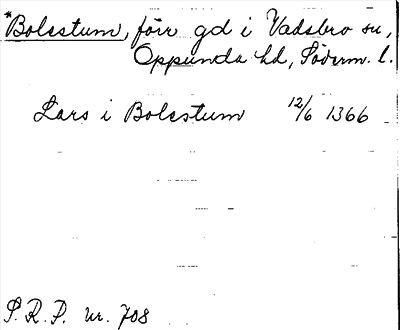 *Bolestum, förr gd i Vadsbro sn,
Oppunda hd, Söderm. l.
Lars i Bolestum 12/6 1366
S.R.P. nr. 708